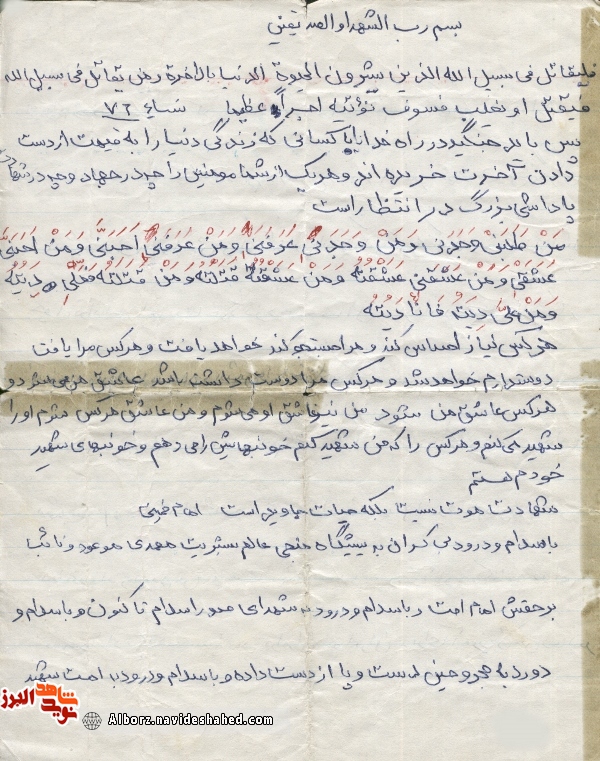 بسم رب الشهداء والصدیقین
فلیقاتل فی سبیل الله الذین یشرون الحیوة الدنیا بالاخرة ومن یقاتل فی سبیل الله
فیقتل او یغلب فسوف نؤتیه اجراً عظیما نساء ۷۴
پس باید جنگید در راه خدا با کسانی که زندگی دنیا را به قیمت از دست
دادن آخرت خریده اند و هر یک از شما مومنین را چه در جهاد و چه در شهادت
پاداشی بزرگ در انتظار است
مَنْ طَلَبَنی وَجَدَنی وَمَنْ وَجَدَنی عَرَفَنی وَمَنْ عَرَفَنی اَحَبَّنی وَمَنْ اَحَبَّنی
عَشَقَنی وَمَنْ عَشَقَنی عَشَقْتُهُ وَمَنْ عَشَقْتُهُ قَتَلْتُهُ وَمَنْ قَتَلْتُهُ فَعَلَیَّ دِیَتُهُ
وَمَنْ عَلَیَّ دِیَتُهُ فَاَنَا دِیَتُهُ
هر کس نیاز احساس کند و مرا جستجو کند خواهد یافت و هر کس مرا یافت
دوستدارم خواهد شد و هر کس مرا دوست داشته باشد عاشق من می شود و
هر کس عاشق من شود من نیز عاشق او می شوم و من عاشق هر کس شوم او را
شهید می کنم و هر کس را که من شهید کنم خونبهایش را می دهم و خونبهای شهید
خودم هستم
شهادت موت نیست بلکه حیات جاوید است امام خمینی
با سلام و درود بی کران به پیشگاه منجی عالم بشریت مهدی موعود و نائب
بر حقش امام امت و با سلام و درود به شهدای صدر اسلام تا کنون و با سلام و
درود به مجروحین دست و پا از دست داده و با سلام و درود به امت شهید
نوید شاهد البرز
Alborz.navideshahed.com